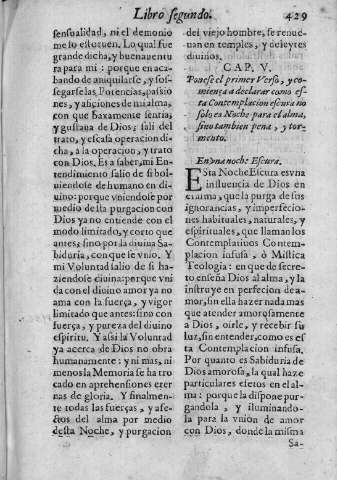 Libro segundo.
429
sensualidad, ni el demonio
me lo estorven. Lo qual fue
grande dicha, y buena ventu
ra para mi: porque en aca-
bando de aniquilarse, y sos-
segarse las Potencias, passio
nes, y aficiones de mi alma,
con que baxamente sentia,
y gustava de Dios; sali del
trato, y escasa operacion di-
cha, a la operacion, y trato
con Dios. Es a saber, mi En-
tendimiento salio de si bol-
viendose de humano en di-
vino: porque vniendose por
medio desta purgacion con
Dios ya no entiende con el
modo limitado, y corto que
antes; sino por la divina Sa-
biduria, con que se vnio. Y
mi Voluntad salio de si ha-
ziendose divina: porque vni
da con el divino amor ya no
ama con la fuerça, y vigor
limitado que antes: sino con
fuerça, y pureza del divino
espiritu. Y assi la Voluntad
ya acerca de Dios no obra
humanamente: y ni mas, ni
menos la Memoria se ha tro
cado en aprehensiones eter
nas de gloria. Y finalmen-
te todas las fuerças, y afe-
ctos del alma por medio
desta Noche, y purgacion
del viejo hombre, se renue-
van en temples, y deleytes
divinos.
CAP. V.
Ponese el primer Verso, y co-
mienza a declarar como es-
ta Contemplacion escura no
solo es Noche para el alma,
sino tambien pena, y tor-
mento.
En vna noche Escura.
ESta Noche Escura es vna
influencia de Dios en
el alma, que la purga de sus
ignorancias, y imperfecio-
nes habituales, naturales, y
espirituales, que llaman los
Contemplativos Contem-
placion infusa, ò Mistica
Teologia: en que de secre-
to enseña Dios al alma, y la
instruye en perfecion de a-
mor, sin ella hazer nada mas
que atender amorosamente
a Dios, oirle, y recebir su
luz, sin entender, como es es
ta Contemplacion infusa.
Por quanto es Sabiduria de
Dios amorosa, la qual haze
particulares efetos en el al-
ma: porque la dispone pur-
gandola, y iluminando-
la para la vnion de amor
con Dios, donde la misma
Sa-